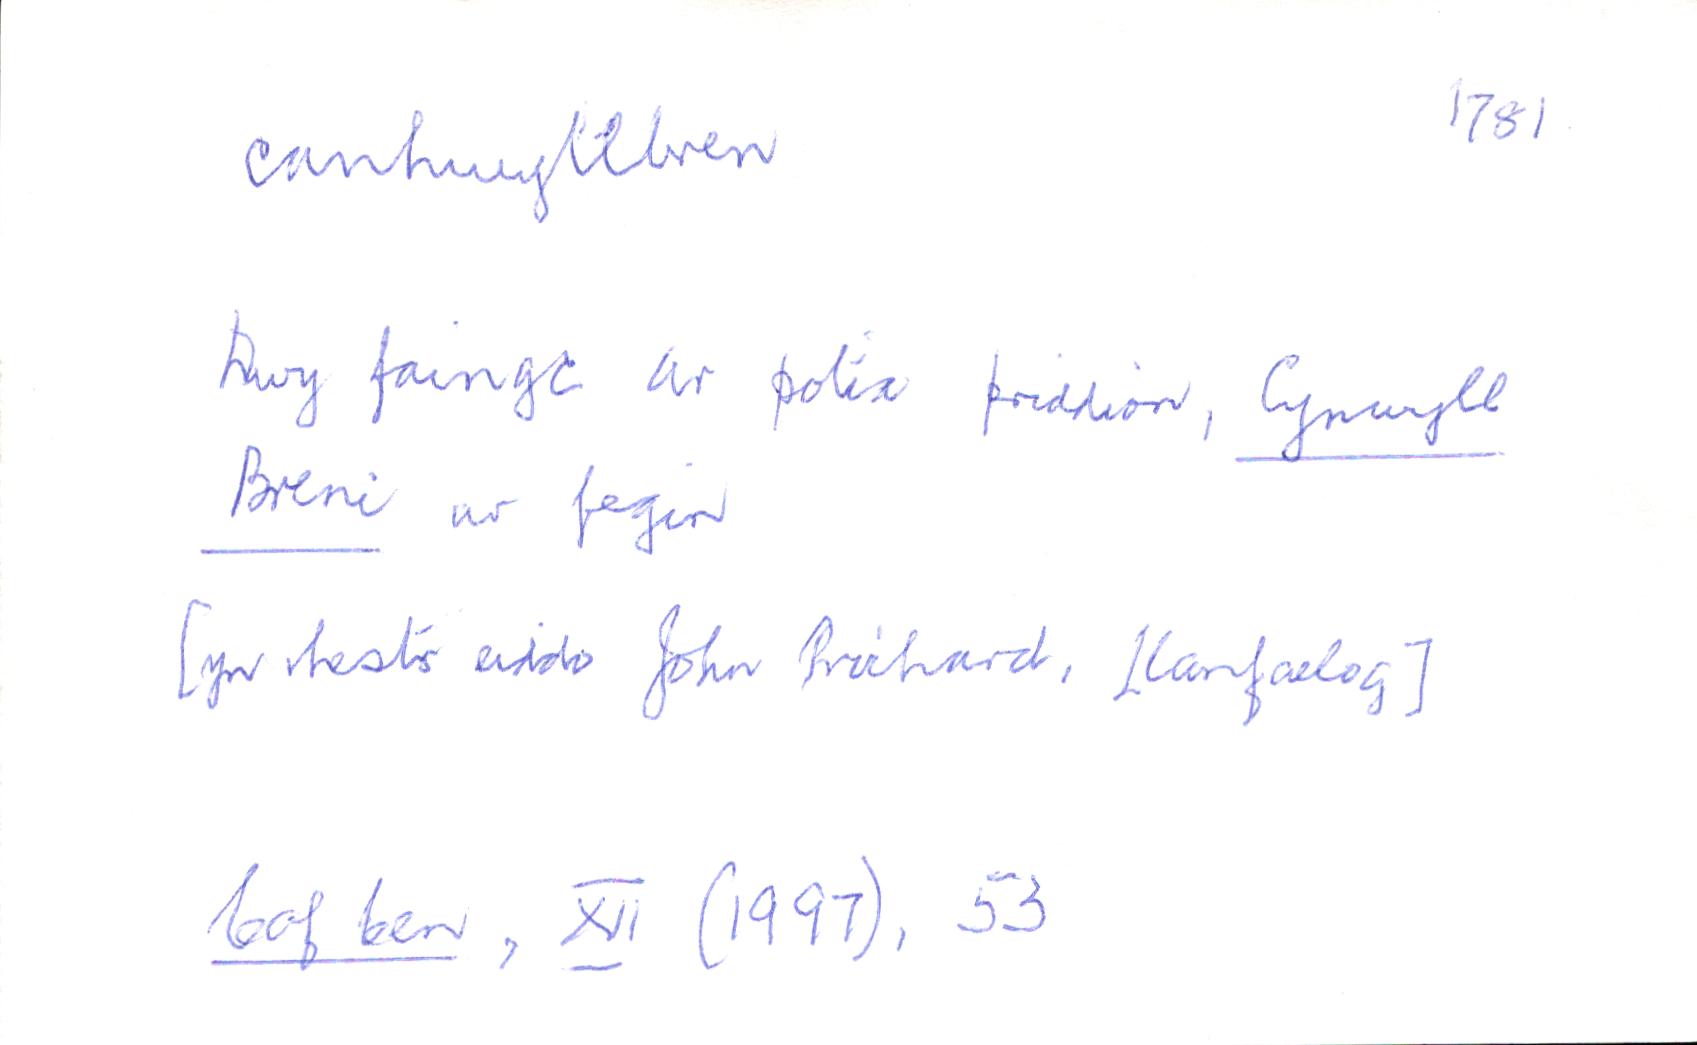 canhwyllbren 1781
Dwy faingc ar potia priddion, Cynwyll
Breni ar fegin
[yn rhestr eiddo John Prichard, Llanfaelog]
Cof Cen, XII (1997), 53